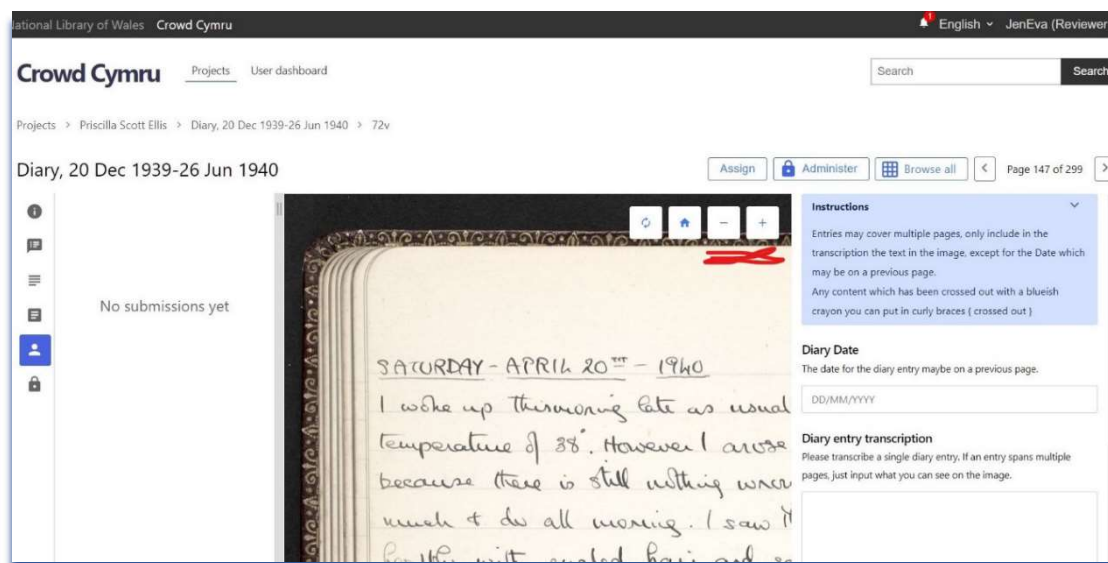 National Library of Wales Crowd Cymru
1 English JenEva (Reviewer
Crowd Cymru Projects User dashboard Search Search
Projects > Priscilla Scott Ellis > Diary, 20 Dec 1939-26 Jun 1940 > 72v
Diary, 20 Dec 1939-26 Jun 1940 Assign Administer Browse all < Page 147 of 299 >
No submissions yet
SATURDAY - APRIL 20TH - 1940
I woke up this morning late as usual
temperature of 38°. However I arose
because there is still nothing
much to do all morning. I saw
with hair and
Instructions
Entries may cover multiple pages, only include in the
transcription the text in the image, except for the Date which
may be on a previous page.
Any content which has been crossed out with a blueish
crayon you can put in curly braces { crossed out }
Diary Date
The date for the diary entry maybe on a previous page.
DD/MM/YYYY
Diary entry transcription
Please transcribe a single diary entry. If an entry spans multiple
pages, just input what you can see on the image.